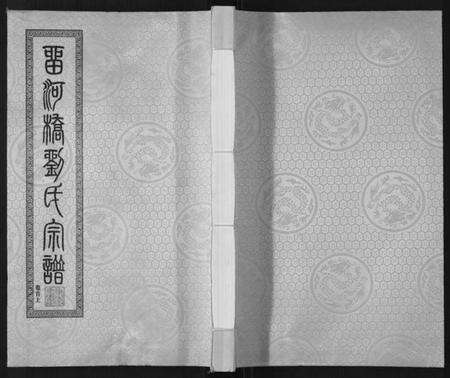 留河橋劉氏宗譜
卷首上